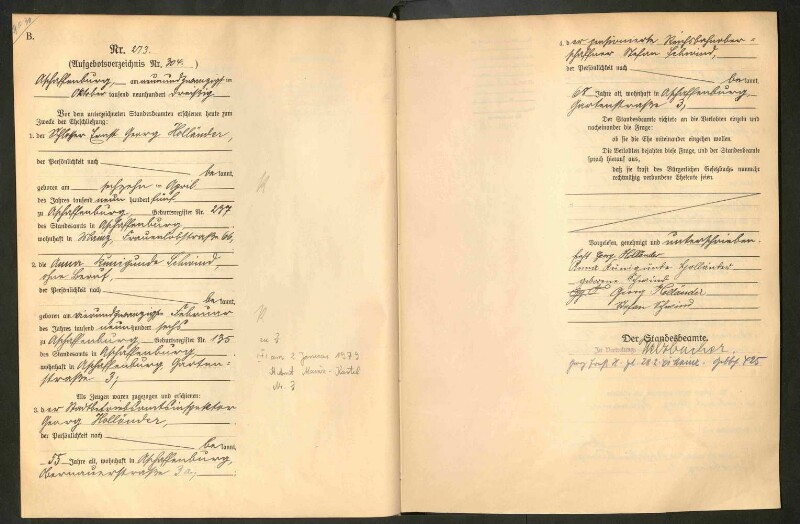 B.
Nr. 273.
(Aufgebotsverzeichnis Nr. 304.)
Aschaffenburg, am neunundzwanzigsten
Oktober tausend neunhundert dreißig
Vor dem unterzeichneten Standesbeamten erschienen heute zum
Zwecke der Eheschließung:
1. der Schlosser Ernst Georg Holländer,
der Persönlichkeit nach
bekannt,
geboren am sechzehnten April
des Jahres tausend neunhundert fünf
zu Aschaffenburg, Geburtsregister Nr. 297
des Standesamts in Aschaffenburg
wohnhaft in Mainz, Frauenlobstraße 66,
2. die Anna Kunigunde Schwind,
ohne Beruf,
der Persönlichkeit nach
bekannt,
geboren am vierundzwanzigsten Februar
des Jahres tausend neunhundert sechs
zu Aschaffenburg, Geburtsregister Nr. 135
des Standesamts in Aschaffenburg
wohnhaft in Aschaffenburg Garten-
straße 3;
Als Zeugen waren zugezogen und erschienen:
3. der Stadtbetriebsamtsinspektor
Georg Holländer,
der Persönlichkeit nach
bekannt,
55 Jahre alt, wohnhaft in Aschaffenburg,
Obernauerstraße 3a;
am 2 Januar 1979
4. der pensionierte Reichsbahnober-
schaffner Stefan Schwind,
der Persönlichkeit nach
bekannt,
Jahre alt, wohnhaft in Aschaffenburg,
Gartenstraße 3;
Der Standesbeamte richtete an die Verlobten einzeln und
nacheinander die Frage:
ob sie die Ehe miteinander eingehen wollen.
Die Verlobten bejahten diese Frage, und der Standesbeamte
sprach hierauf aus,
daß sie kraft des Bürgerlichen Gesetzbuchs nunmehr
rechtmäßig verbundene Eheleute seien.
Vorgelesen, genehmigt und unterschrieben.
Ernst Georg Holländer
Anna Kunigunde Holländer
geborene Schwind
Georg Holländer
Stefan Schwind
Der Standesbeamte.
In Vertretung: